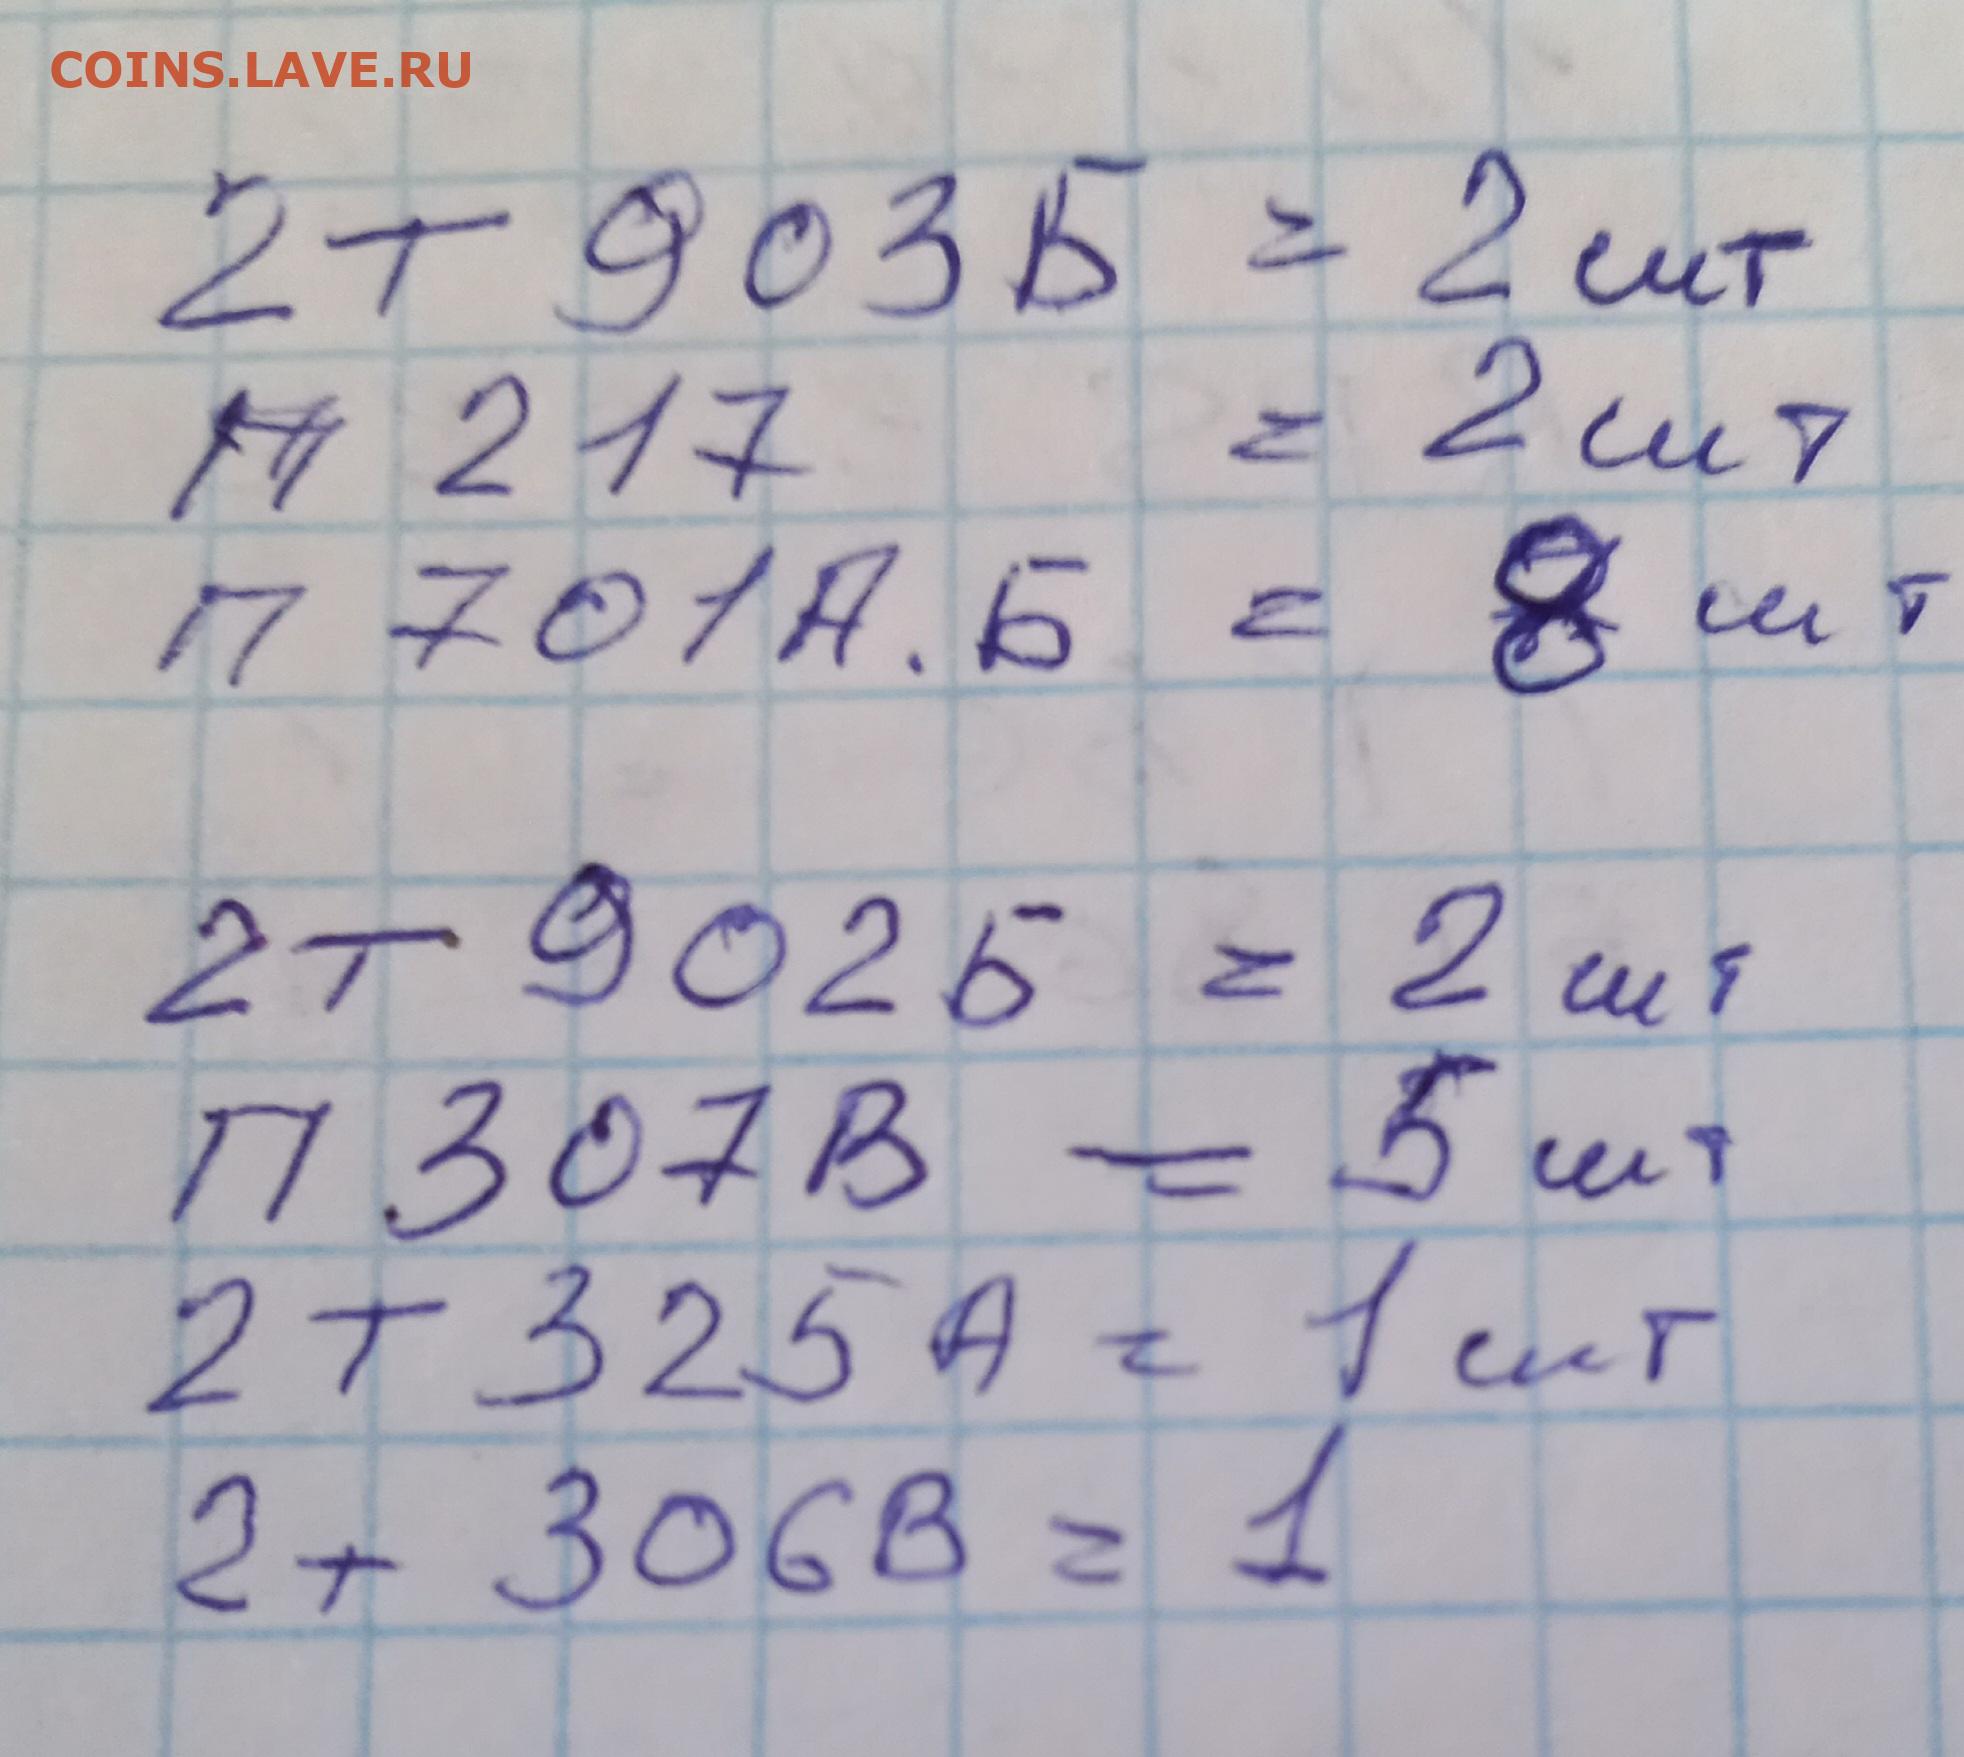 COINS.LAVE.RU
2Т 903Б = 2 шт
П 217 = 2 шт
П 701А.Б = 8 шт
2Т 902Б = 2 шт
П 307В = 5 шт
2Т 325А = 1 шт
2т 306В = 1